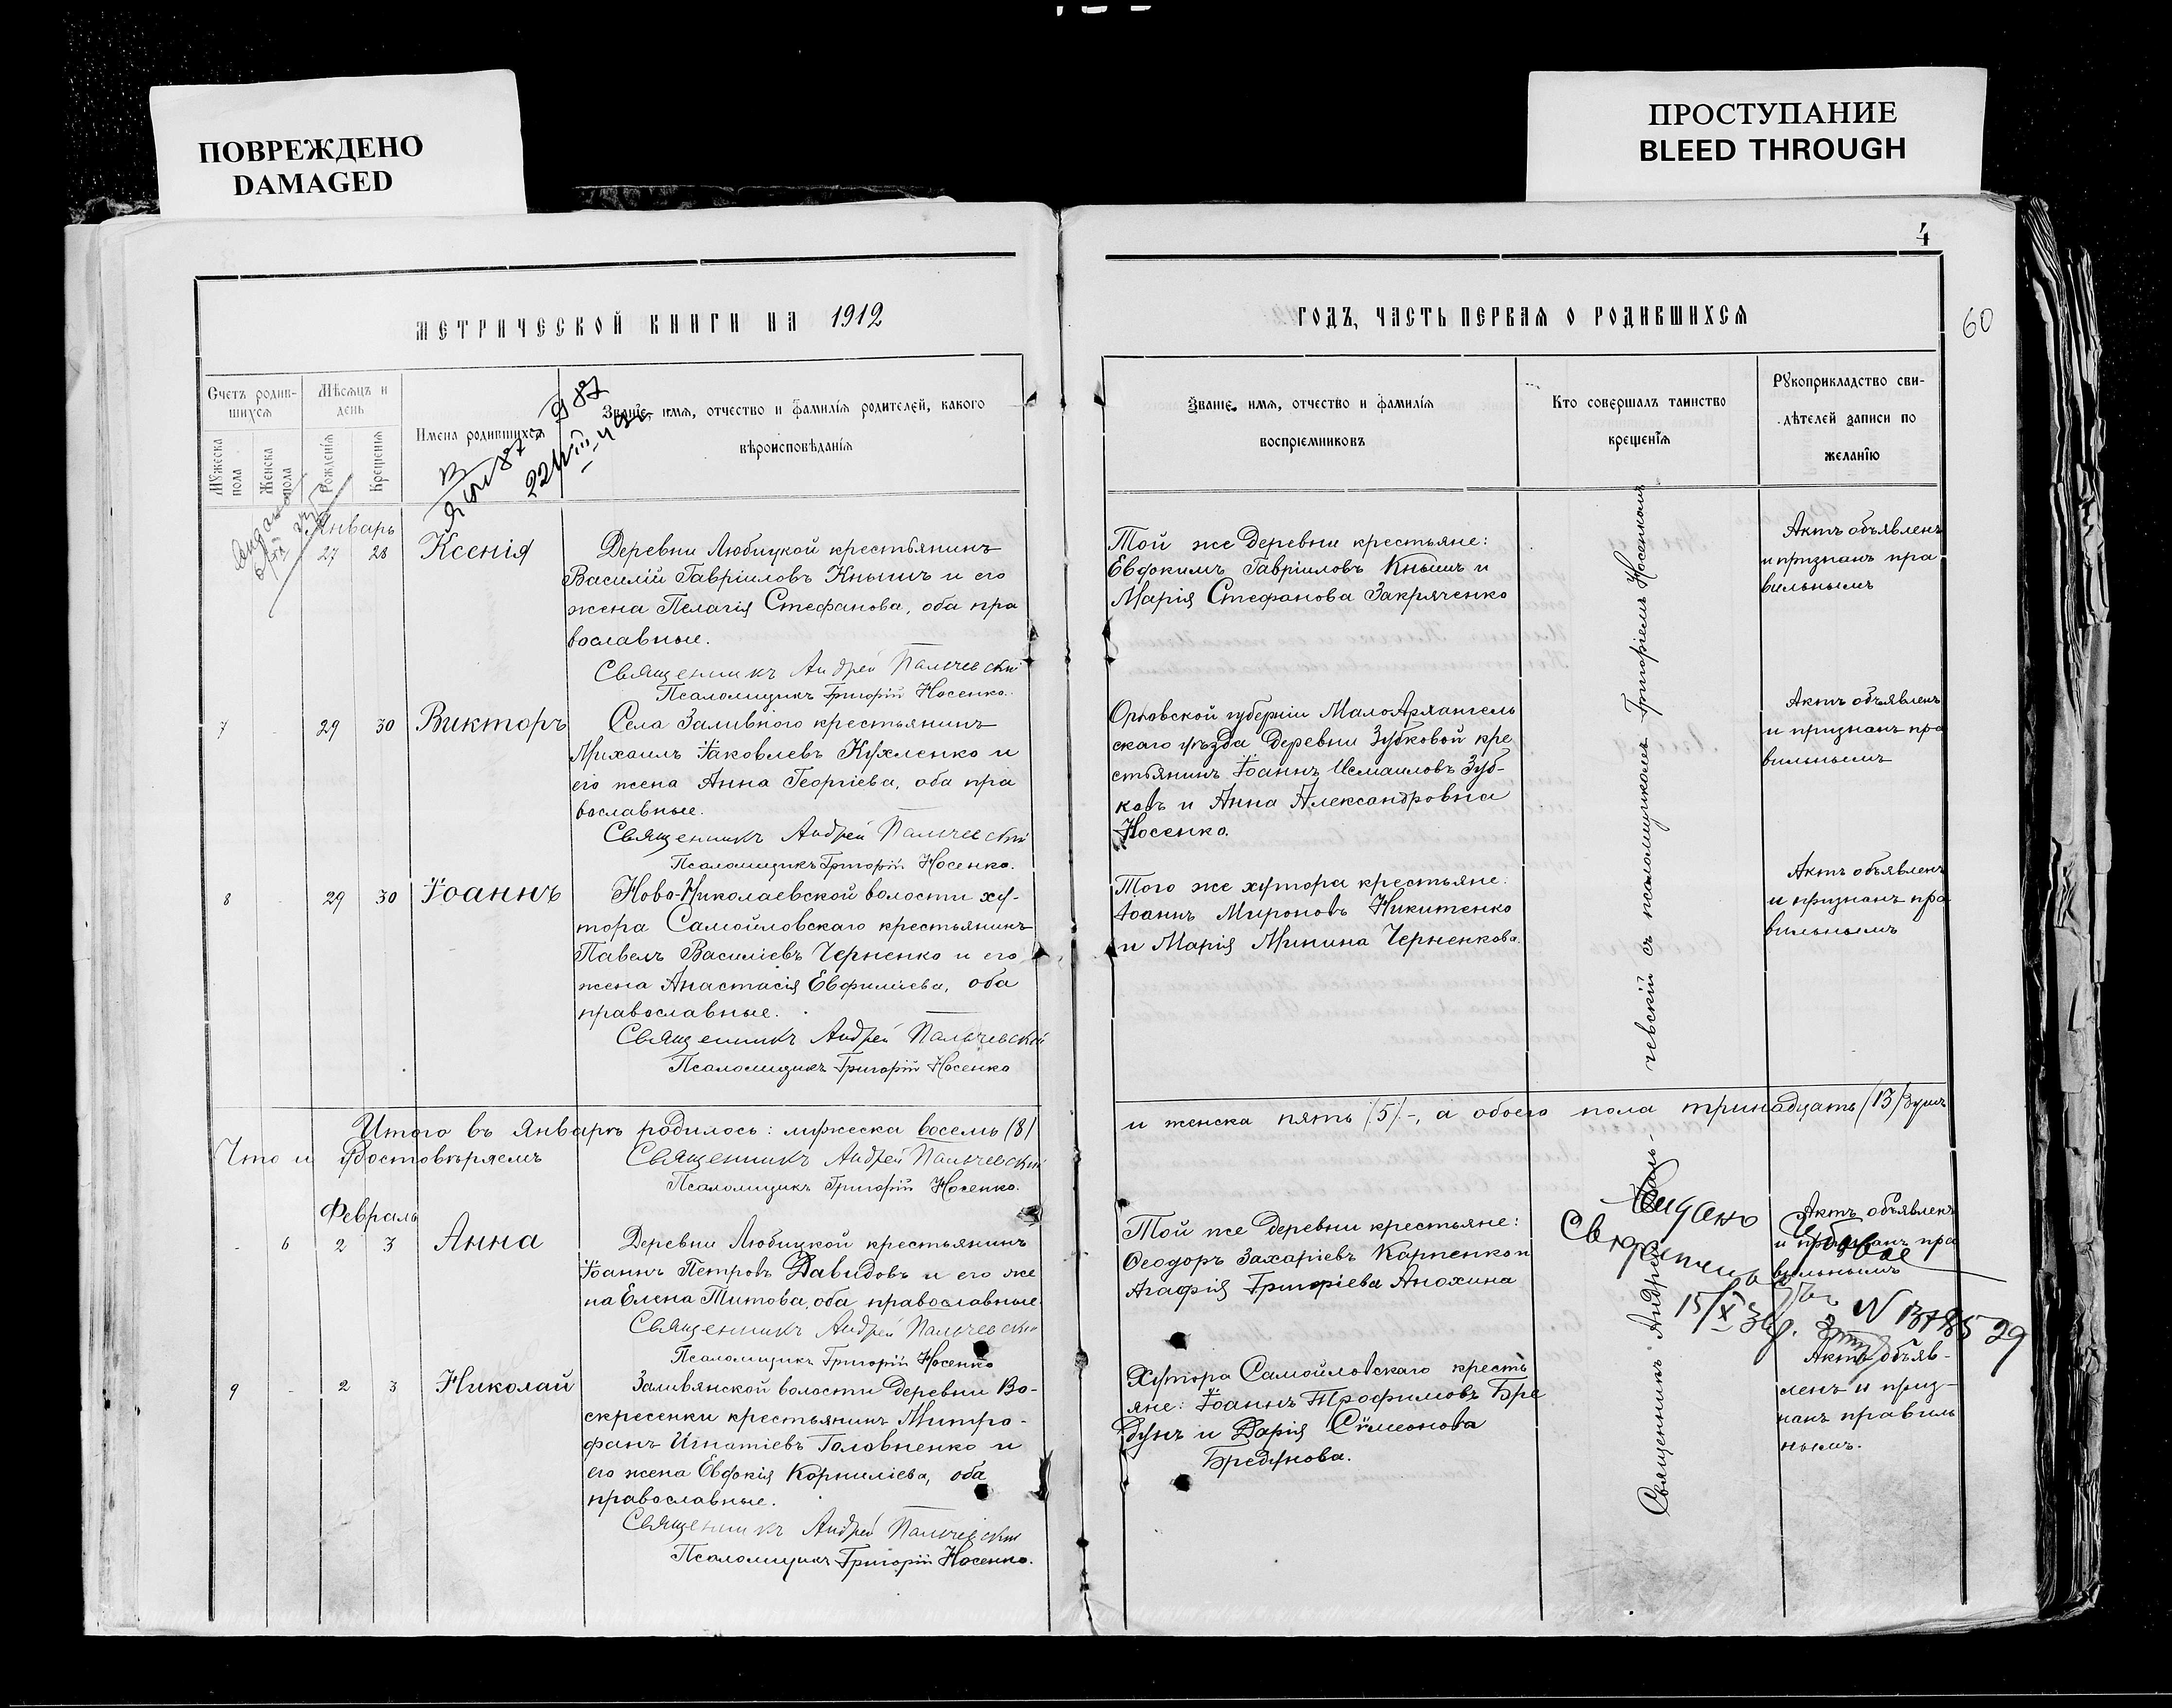 ПОВРЕЖДЕНО
DAMAGED
ПРОСТУПАНИЕ
BLEED THROUGH
4
60
МЕТРИЧЕСКОЙ КНИГИ НА 1912
ГОДЪ, ЧАСТЬ ПЕРВАЯ О РОДИВШИХСЯ
Счетъ родив-
шихся
Мѣсяцъ и
день
Мужеска
пола
Женска
пола
Рожденія
Крещенія
Имена родившихся
Званіе, имя, отчество и фамилія родителей, какого
вѣроисповѣданія
Званіе, имя, отчество и фамилія
воспріемниковъ
Кто совершалъ таинство
крещенія
Рукоприкладство сви-
дѣтелей записи по
желанію
Январь
27 28 Ксенія
Деревни Любицкой крестьянинъ
Василій Гавріиловъ Кнышъ и его
жена Пелагія Стефанова, оба пра
вославные.
Священникъ Андрей Пальчевскій
Псаломщикъ Григорій Носенко.
Той же деревни крестьяне:
Евфокимъ Гавріиловъ Кнышъ и
Марія Стефанова Закряченко
Актъ объявленъ
и признанъ пра
вильнымъ
7 - 29 30 Викторъ
Села Заливного крестьянинъ
Михаилъ Іаковлевъ Кухленко и
его жена Анна Георгіева, оба пра
вославные.
Священникъ Андрей Пальчевскій
Псаломщикъ Григорій Носенко.
Орловской губерніи МалоАрхангель
скаго уѣзда деревни Зубковой кре
стьянинъ Іоаннъ Исмаиловъ Зуб-
ковъ и Анна Александровна
Носенко.
Актъ объявленъ
и признанъ пра
вильнымъ
8 - 29 30 Іоаннъ
Ново-Николаевской волости ху-
тора Самойловскаго крестьянинъ
Павелъ Василіевъ Черненко и его
жена Анастасія Евфиміева, оба
православные.
Священникъ Андрей Пальчевскій
Псаломщикъ Григорій Носенко
Того же хутора крестьяне:
Іоаннъ Мироновъ Никитенко
и Марія Минина Черненкова.
Актъ объявленъ
и признанъ пра
вильнымъ
Итого въ Январѣ родилось: мужеска восемь (8)
и женска пять (5) -, а обоего пола тринадцать (13) душъ
Что и удостовѣряемъ
Священникъ Андрей Пальчевскій
Псаломщикъ Григорій Носенко.
Февраль
- 6 2 3 Анна
Деревни Любицкой крестьянинъ
Іоаннъ Петровъ Давидовъ и его же
на Елена Титова, оба православные.
Священникъ Андрей Пальчевскій
Псаломщикъ Григорій Носенко
Той же деревни крестьяне:
Ѳеодоръ Захаріевъ Карпенко и
Агафія Григоріева Анохина
Актъ объявленъ
и признанъ пра
вильнымъ
9 - 2 3 Николай
Заливянской волости деревни Во-
скресенки крестьянинъ Митро-
фанъ Игнатіевъ Головненко и
его жена Евфокія Корниліева, оба
православные.
Священникъ Андрей Пальчевскій
Псаломщикъ Григорій Носенко.
Хутора Самойловскаго кресть
яне: Іоаннъ Трофимовъ Бре
дунъ и Дарія Сѵмеонова
Бредунова.
Актъ объяв-
ленъ и приз-
нанъ правиль
нымъ.
Священникъ Андрей Паль-
чевскій съ псаломщикомъ Григоріемъ Носенкомъ